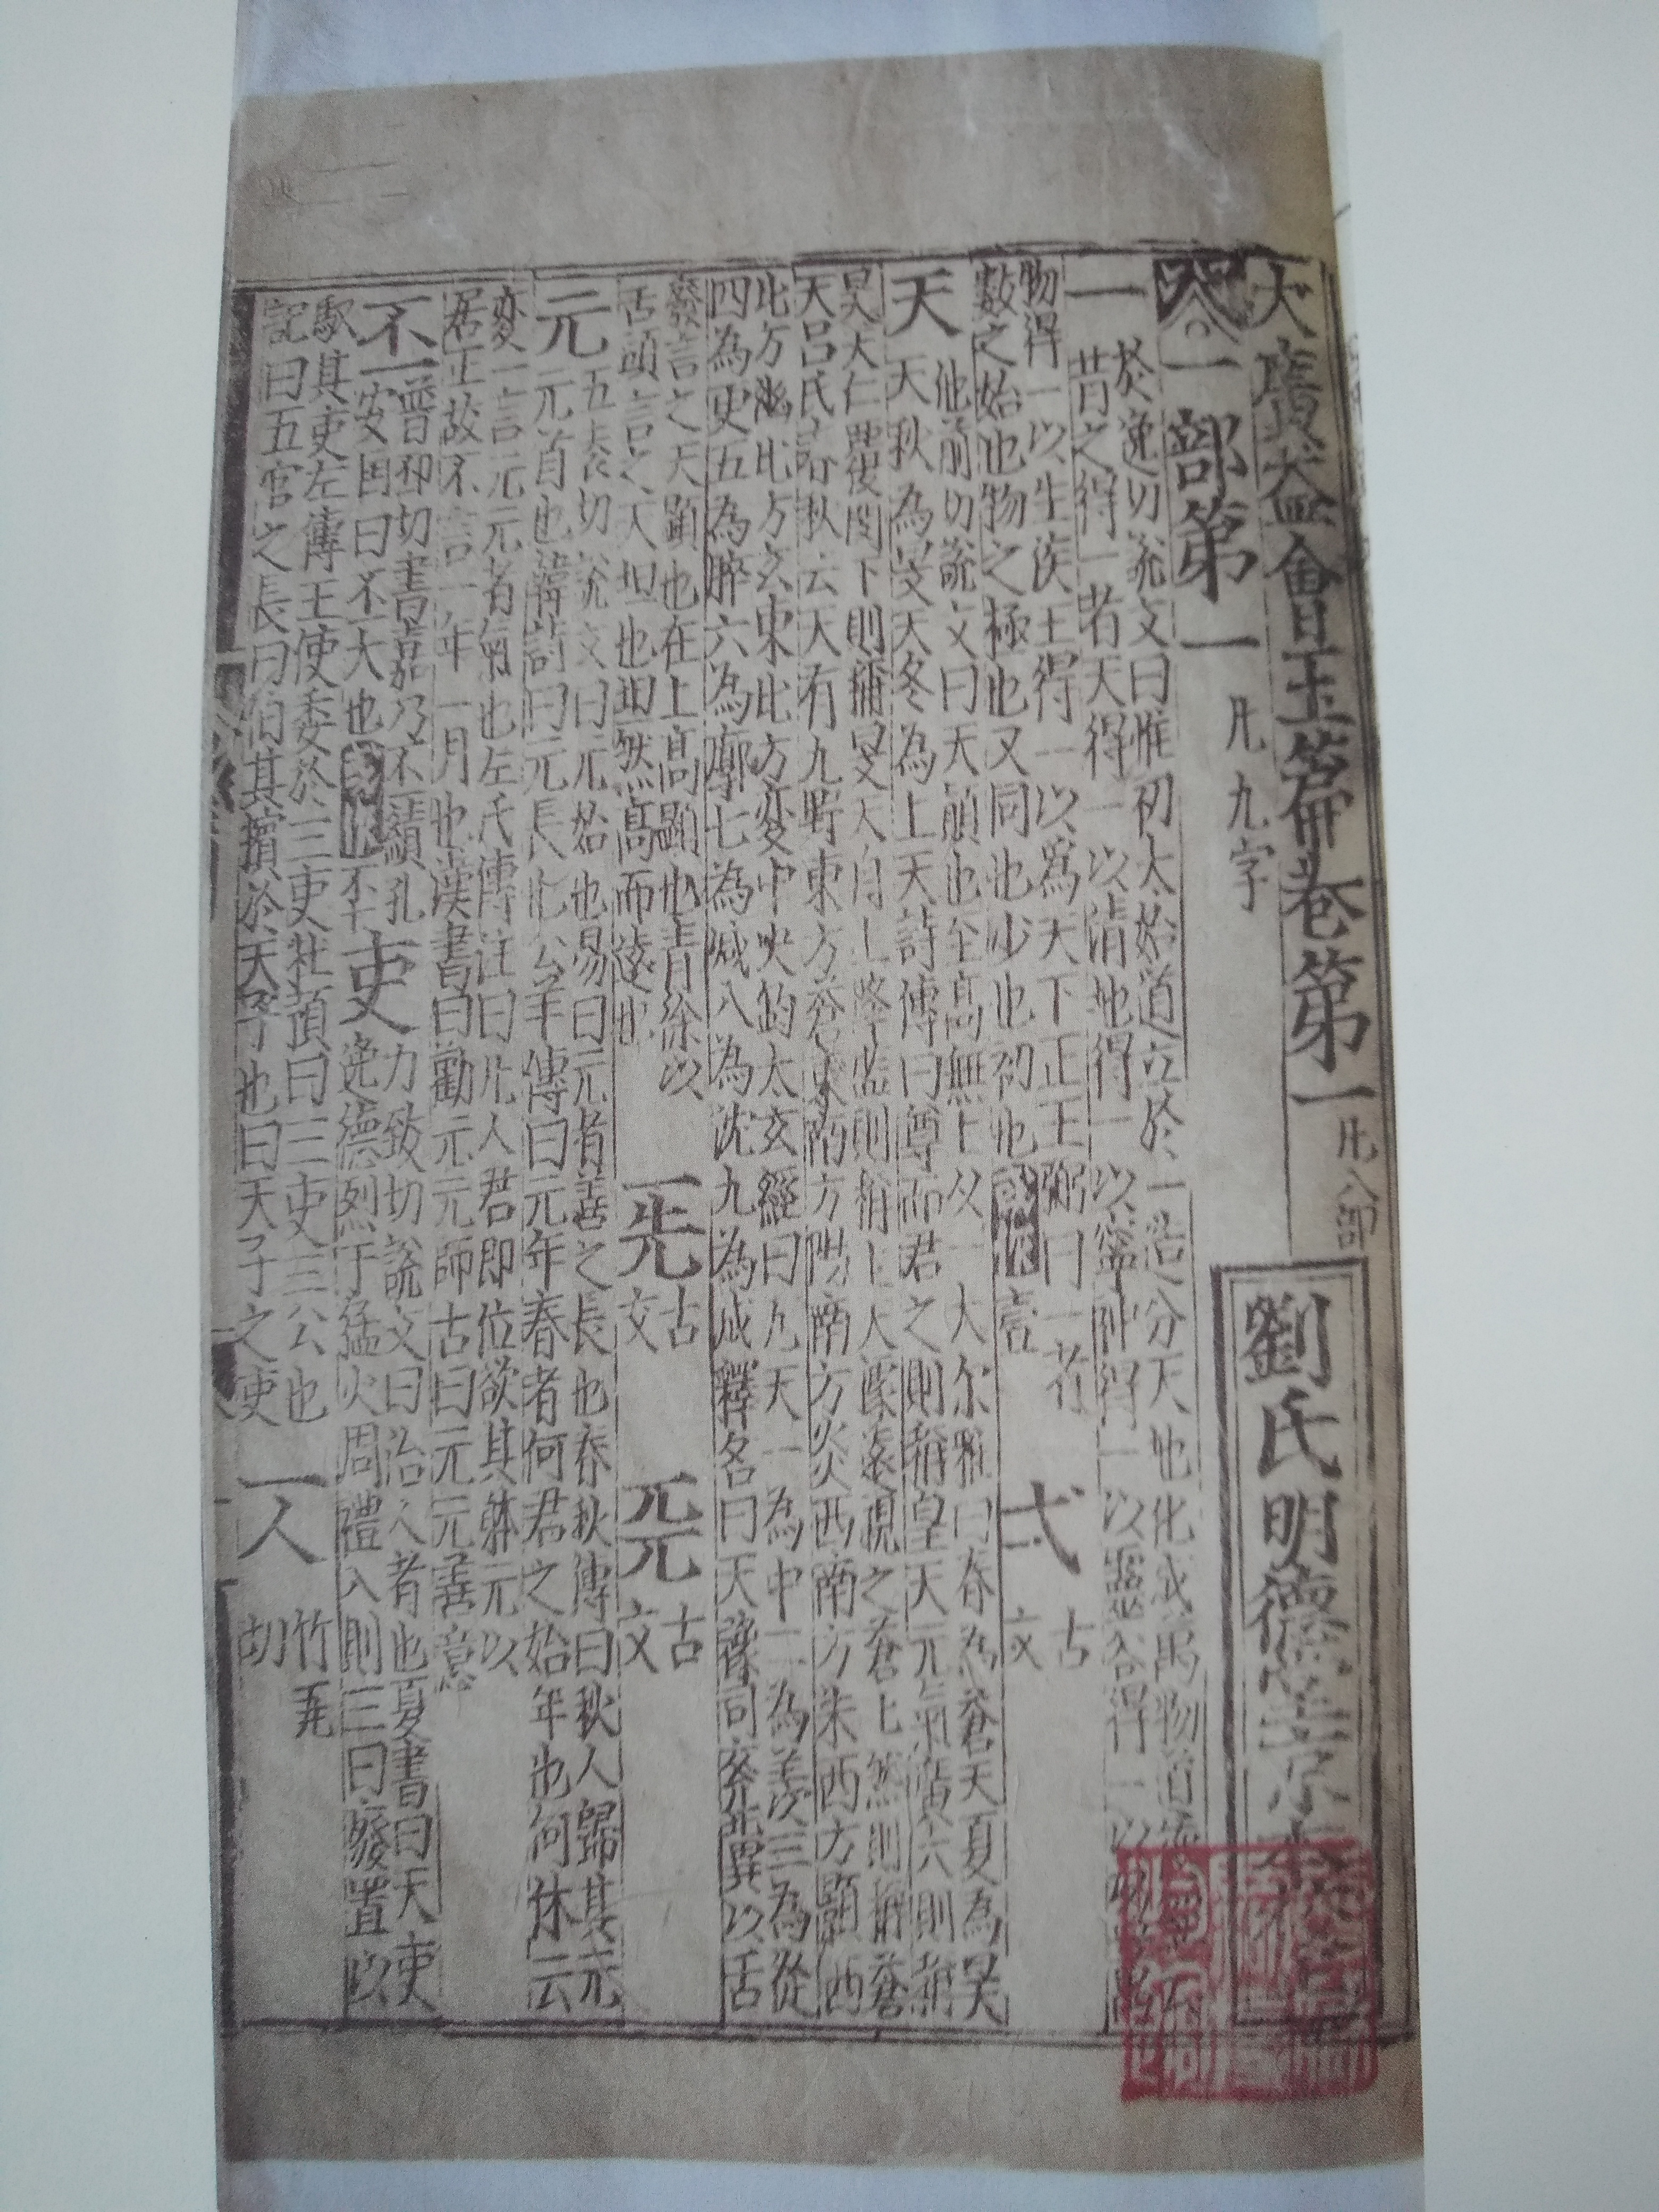 大廣益會玉篇卷第一 凡八部
劉氏明德堂京本校
一部第一 凡九字
一 於逸切說文曰惟初太始道立於一造分天地化成萬物道
昔之得一者天得一以清地得一以寧神得一以靈谷得一以
物得一以生侯王得一以爲天下正王弼曰一者
數之始也物之極也又同也少也初也 同作 壹
弌 古文
天 他前切說文曰天顛也至高無上从一大尔雅曰春為蒼天夏為昊
天秋為旻天冬為上天詩傳曰尊而君之則稱皇天元氣廣大則稱
昊天仁覆閔下則稱旻天自上降監則稱上天據遠視之蒼上然則稱蒼
天呂氏春秋云天有九野東方蒼東南方陽南方炎西南方朱西方顥西
北方幽北方玄東北方変中央鈞太玄經曰九天一為中二為羨三為從
四為更五為睟六為廓七為減八為沈九為成釋名曰天豫司兖冀以舌
腹言之天顯也在上高顯也青徐以
舌頭言之天坦也坦然高而遠也
兂 古文
𠑹 古文
元 五袁切說文曰元始也易曰元者善之長也春秋傳曰狄人歸其元
元首也韓詩曰元長也公羊傳曰元年春者何君之始年也何休云
変一言元元者氣也左氏傳注曰凡人君即位欲其躰元以
居正故不言一年一月也漢書曰勸元元師古曰元元善意
丕 普邳切書嘉乃丕績孔
安国曰丕大也
吏 力致切說文曰治人者也夏書曰天吏
逸德烈于猛火周禮入則三曰廢置以
馭其吏左傳王使委於三吏杜預曰三吏三公也
記曰五官之長曰伯其擯於天子也曰天子之吏
竹瓦
胡